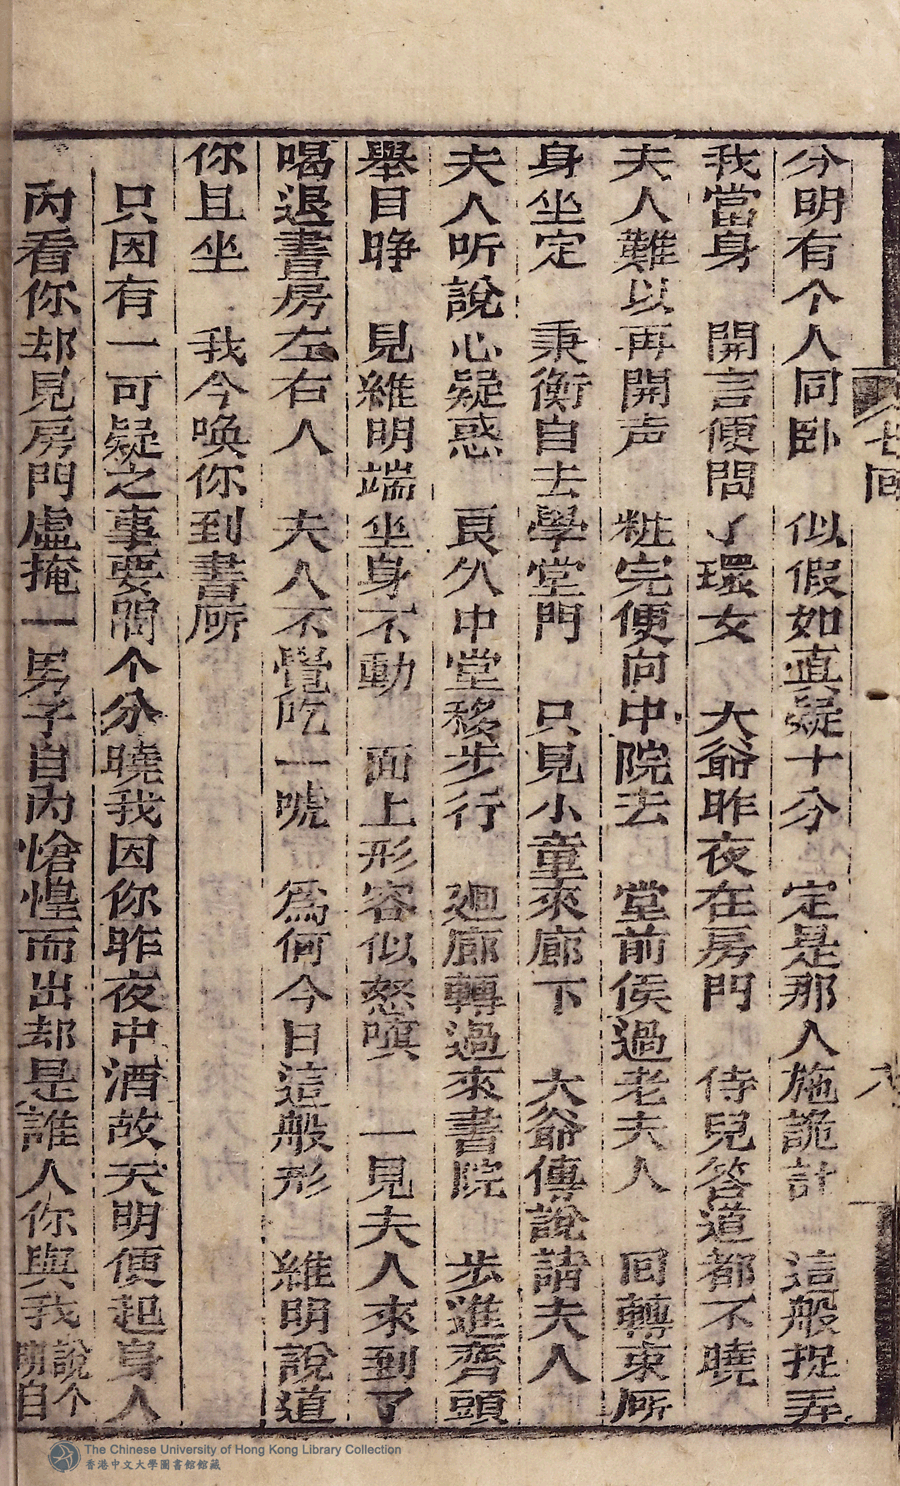 分明有个人同卧　似假如真疑十分　定是那人施詭計　這般捉弄
我當身　開言便問了環女　大爺昨夜在房門　侍兒答道都不曉
夫人難以再開声　粧完便向中院去　堂前侯過老夫人　回轉東廂
身坐定　秉衡自去學堂門　只見小童來廊下　大爺傳說請夫人
夫人听說心疑惑　良久中堂移步行　廻廊轉過來書院　步進齊頭
舉目睁　見維明端坐身不動　面上形容似怒嗔　一見夫人來到了
喝退書房左右人　夫人不覺吃一唬　爲何今日這般形　維明說道
你且坐　我今喚你到書厛
只因有一可疑之事要問个分曉我因你昨夜中酒故天明便起身人
內看你却見房門虛掩一男子自內愴惶而出却是誰人你與我說个明白
七回
八
The Chinese University of Hong Kong Library Collection
香港中文大學圖書館館藏